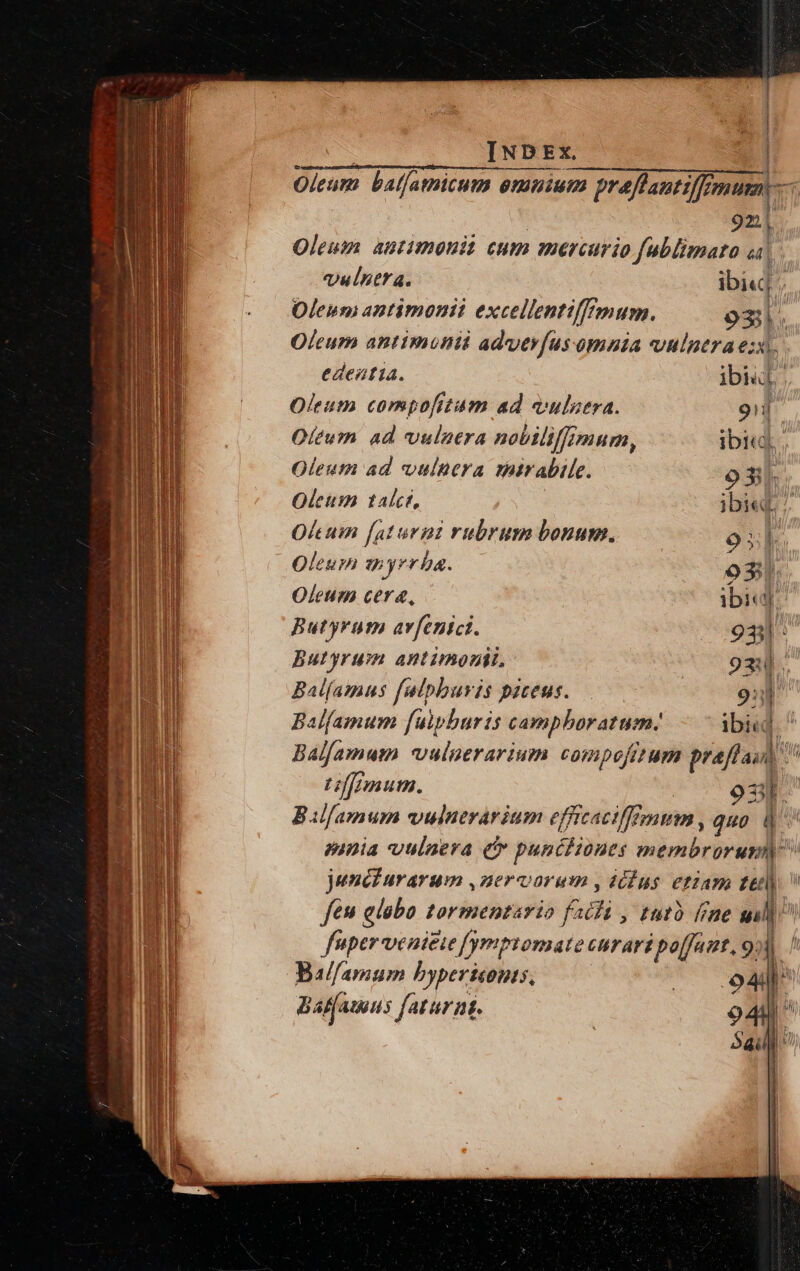 INDEX.
Oleum balſamicum omnium præſtantiſſimum
92
Oleum antimonii cum mercurio ſublimato
vulnera. ibid
Oleum antimonii excellentiſſimum. 93
Oleum antimonii adverſus omnia vulnera ex
edentia. ibid
Oleum compoſitum ad vulnera. 9
Oleum ad vulnera nobiliſſimum, ibid
Oleum ad vulnera mirabile. 93
Oleum talci, ibid
Oleum ſaturni rubrum bonum. 9
Oleum myrrhæ. 93
Oleum ceræ, ibid
Butyrum arſenici. 93
Butyrum antimonii. 93
Balſamus ſulphuris piceus. 9
Balſamum ſulphuris camphoratum. ibid
Balſamum vulnerarium compoſitum præſtan
tiſſimum. 93
Balſamum vulnerarium efficaciſſimum, quo
mnia vulnera & punctiones membrorum
juncturarum, nervorum, ictus etiam
ſeu globo tormentario facti, tutò ſine
ſuperveniẽte ſymptomate curari poſſunt, 9
Balſamum hypericonis, 94
Balſamus ſaturni. 94